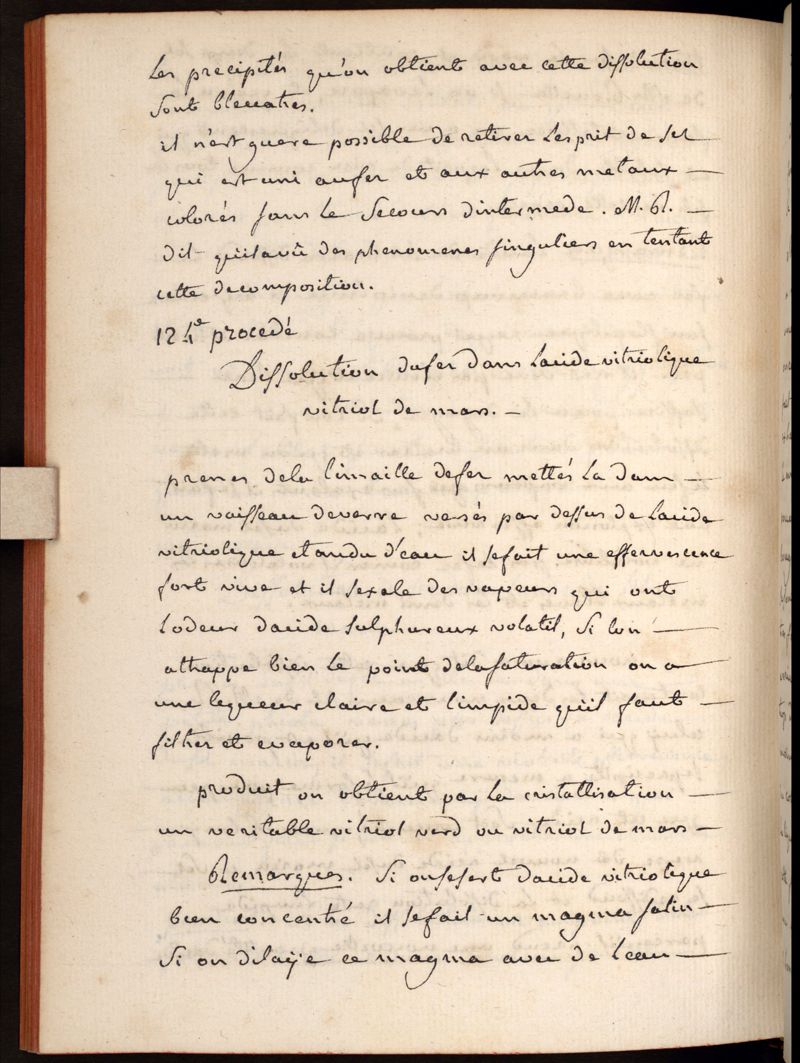 Les precipités qu'on obtient avec cette dissolution
sont bleuatres.
il n'est guere possible de retirer Lesprit de sel
qui est uni aufer et aux autres metaux —
colorés sans le secours dintermede. M. R. —
dit quilavû des phenomenes singuliers en tentant
cette decomposition.
124e procedé
Dissolution dufer dans Lacide vitriolique
vitriol de mars. —
prenes dela limaille defer mettés La dans —
un vaisseau deverre versés par dessus de Lacide
vitriolique etandu d'eau il sefait une effervescence
fort vive et il sexale des vapeurs qui ont
Lodeur dacide sulphureux volatil, si lon —
attrappe bien le point delasaturation on a —
une liqueur claire et limpide quil faut —
filtrer et evaporer.
produit on obtient par la cristallisation —
un veritable vitriol verd ou vitriol de mars —
Remarques. Si onsesert dacide vitriolique
bien concentré il sefait un magma salin —
Si on dilaÿe ce magma avec de leau —